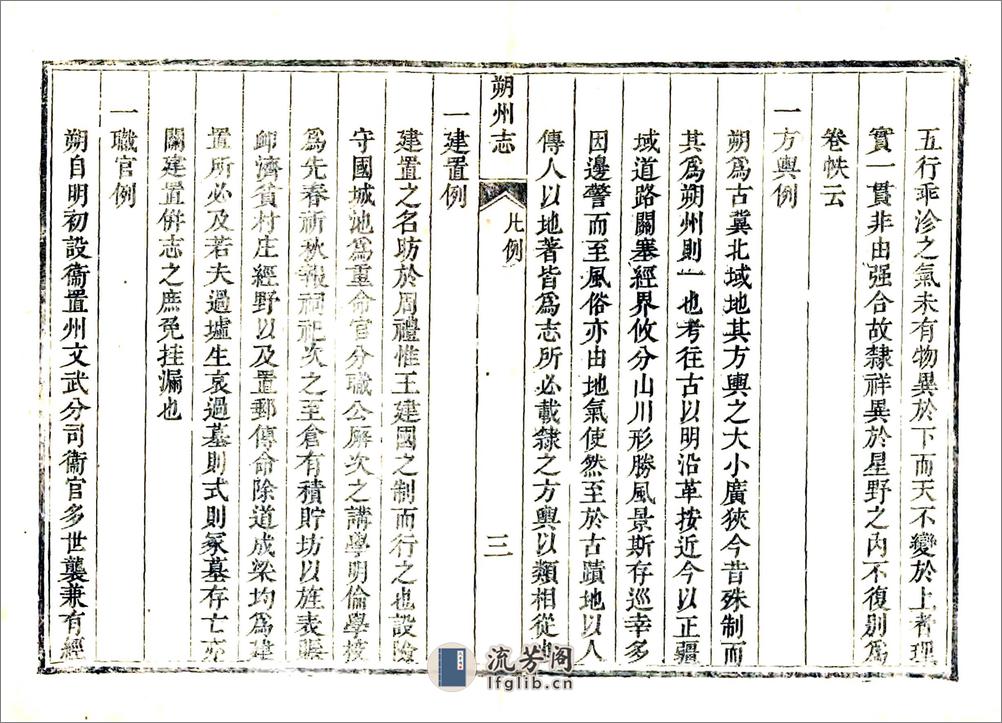 五行乖沴之氣未有物異於下而天不變於上者理
實一貫非由强合故隸祥異於星野之内不復別爲
卷帙云
一方輿例
朔爲古冀北域地其方輿之大小廣狹今昔殊制而
其爲朔州則一也考往古以明沿革按近今以正疆
域道路關塞經界攸分山川形勝風景斯存巡幸多
因邊警而至風俗亦由地氣使然至於古蹟地以人
傳人以地著皆爲志所必載隸之方輿以類相從也
朔州志
凡例
三
一建置例
建置之名昉於周禮惟王建國之制而行之也設險
守國城池爲重命官分職公廨次之講學明倫學校
爲先春祈秋報祠祀次之至倉有積貯坊以旌表賑
卹濟貧村庄經野以及置郵傳命除道成梁均爲建
置所必及若夫過墟生哀過墓則式則冢墓存亡亦
關建置併志之庶免挂漏也
一職官例
朔自明初設衞置州文武分司衞官多世襲兼有經
流芳阁
lfglib.cn